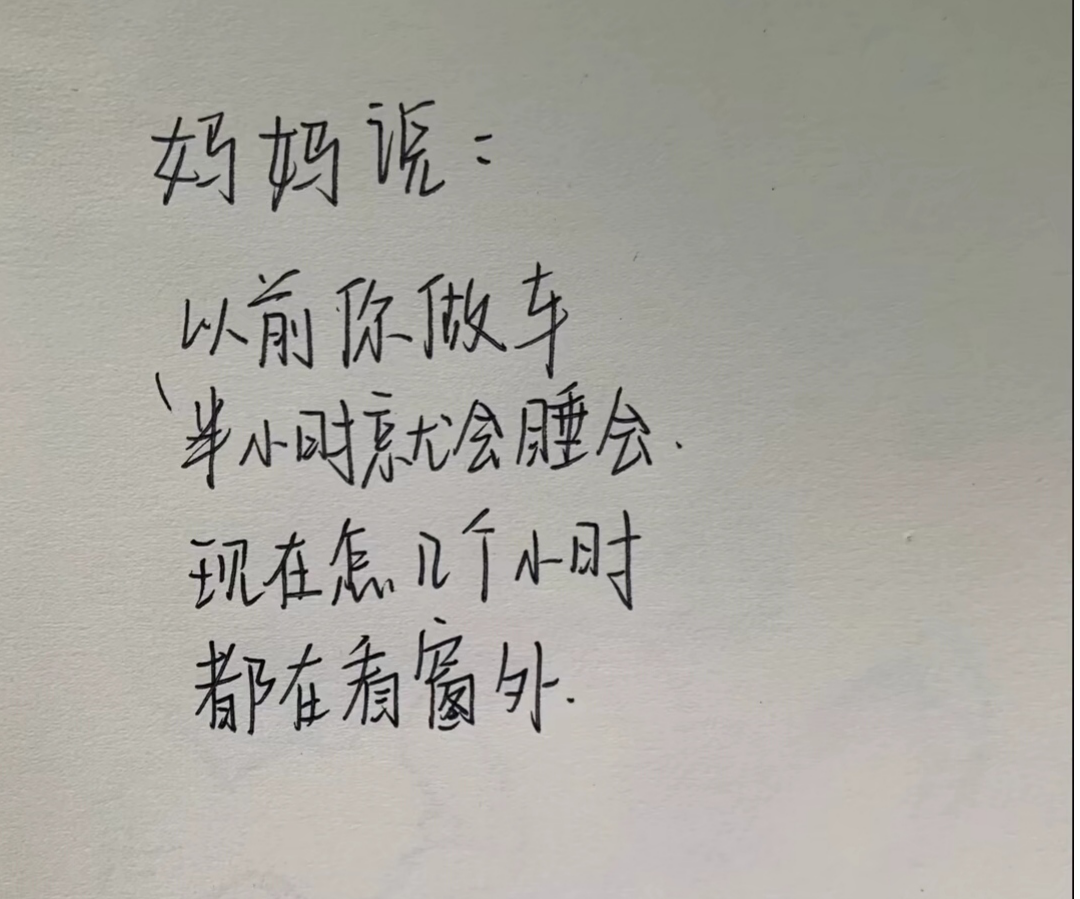 妈妈说:
以前你做车
半小时就会睡会.
现在怎几个小时
都在看窗外.